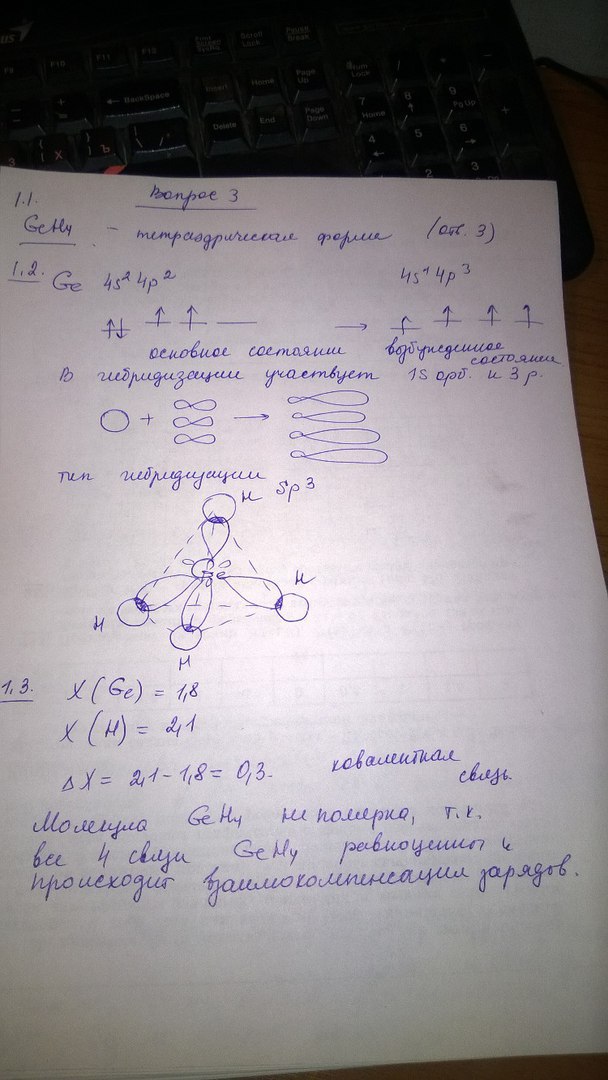 F9 F10 F11 F12 Print Screen SysRq Scroll Lock Pause Break
← BackSpace Insert Home Page Up Num Lock
Delete End Page Down 7 Home 8 ↑ 9 PgUp +
3 Х Ъ 4 ← 5 6 →
1.1. Вопрос 3
GeH4 - тетраэдрическая форма (отв. 3)
1.2. Ge 4s² 4p² 4s¹ 4p³
↑↓ ↑ ↑ → ↑ ↑ ↑ ↑
основное состоянии возбужденное состоянии
В гибридизации участвует 1s орб. и 3 p.
+ →
тип гибридизации sp³
H
Ge
H
H
H
1.3. X (Ge) = 1,8
X (H) = 2,1
ΔX = 2,1 - 1,8 = 0,3. ковалентная связь.
Молекула GeH4 не полярна, т.к.
все 4 связи GeH4 равноценны и
происходит взаимокомпенсация зарядов.